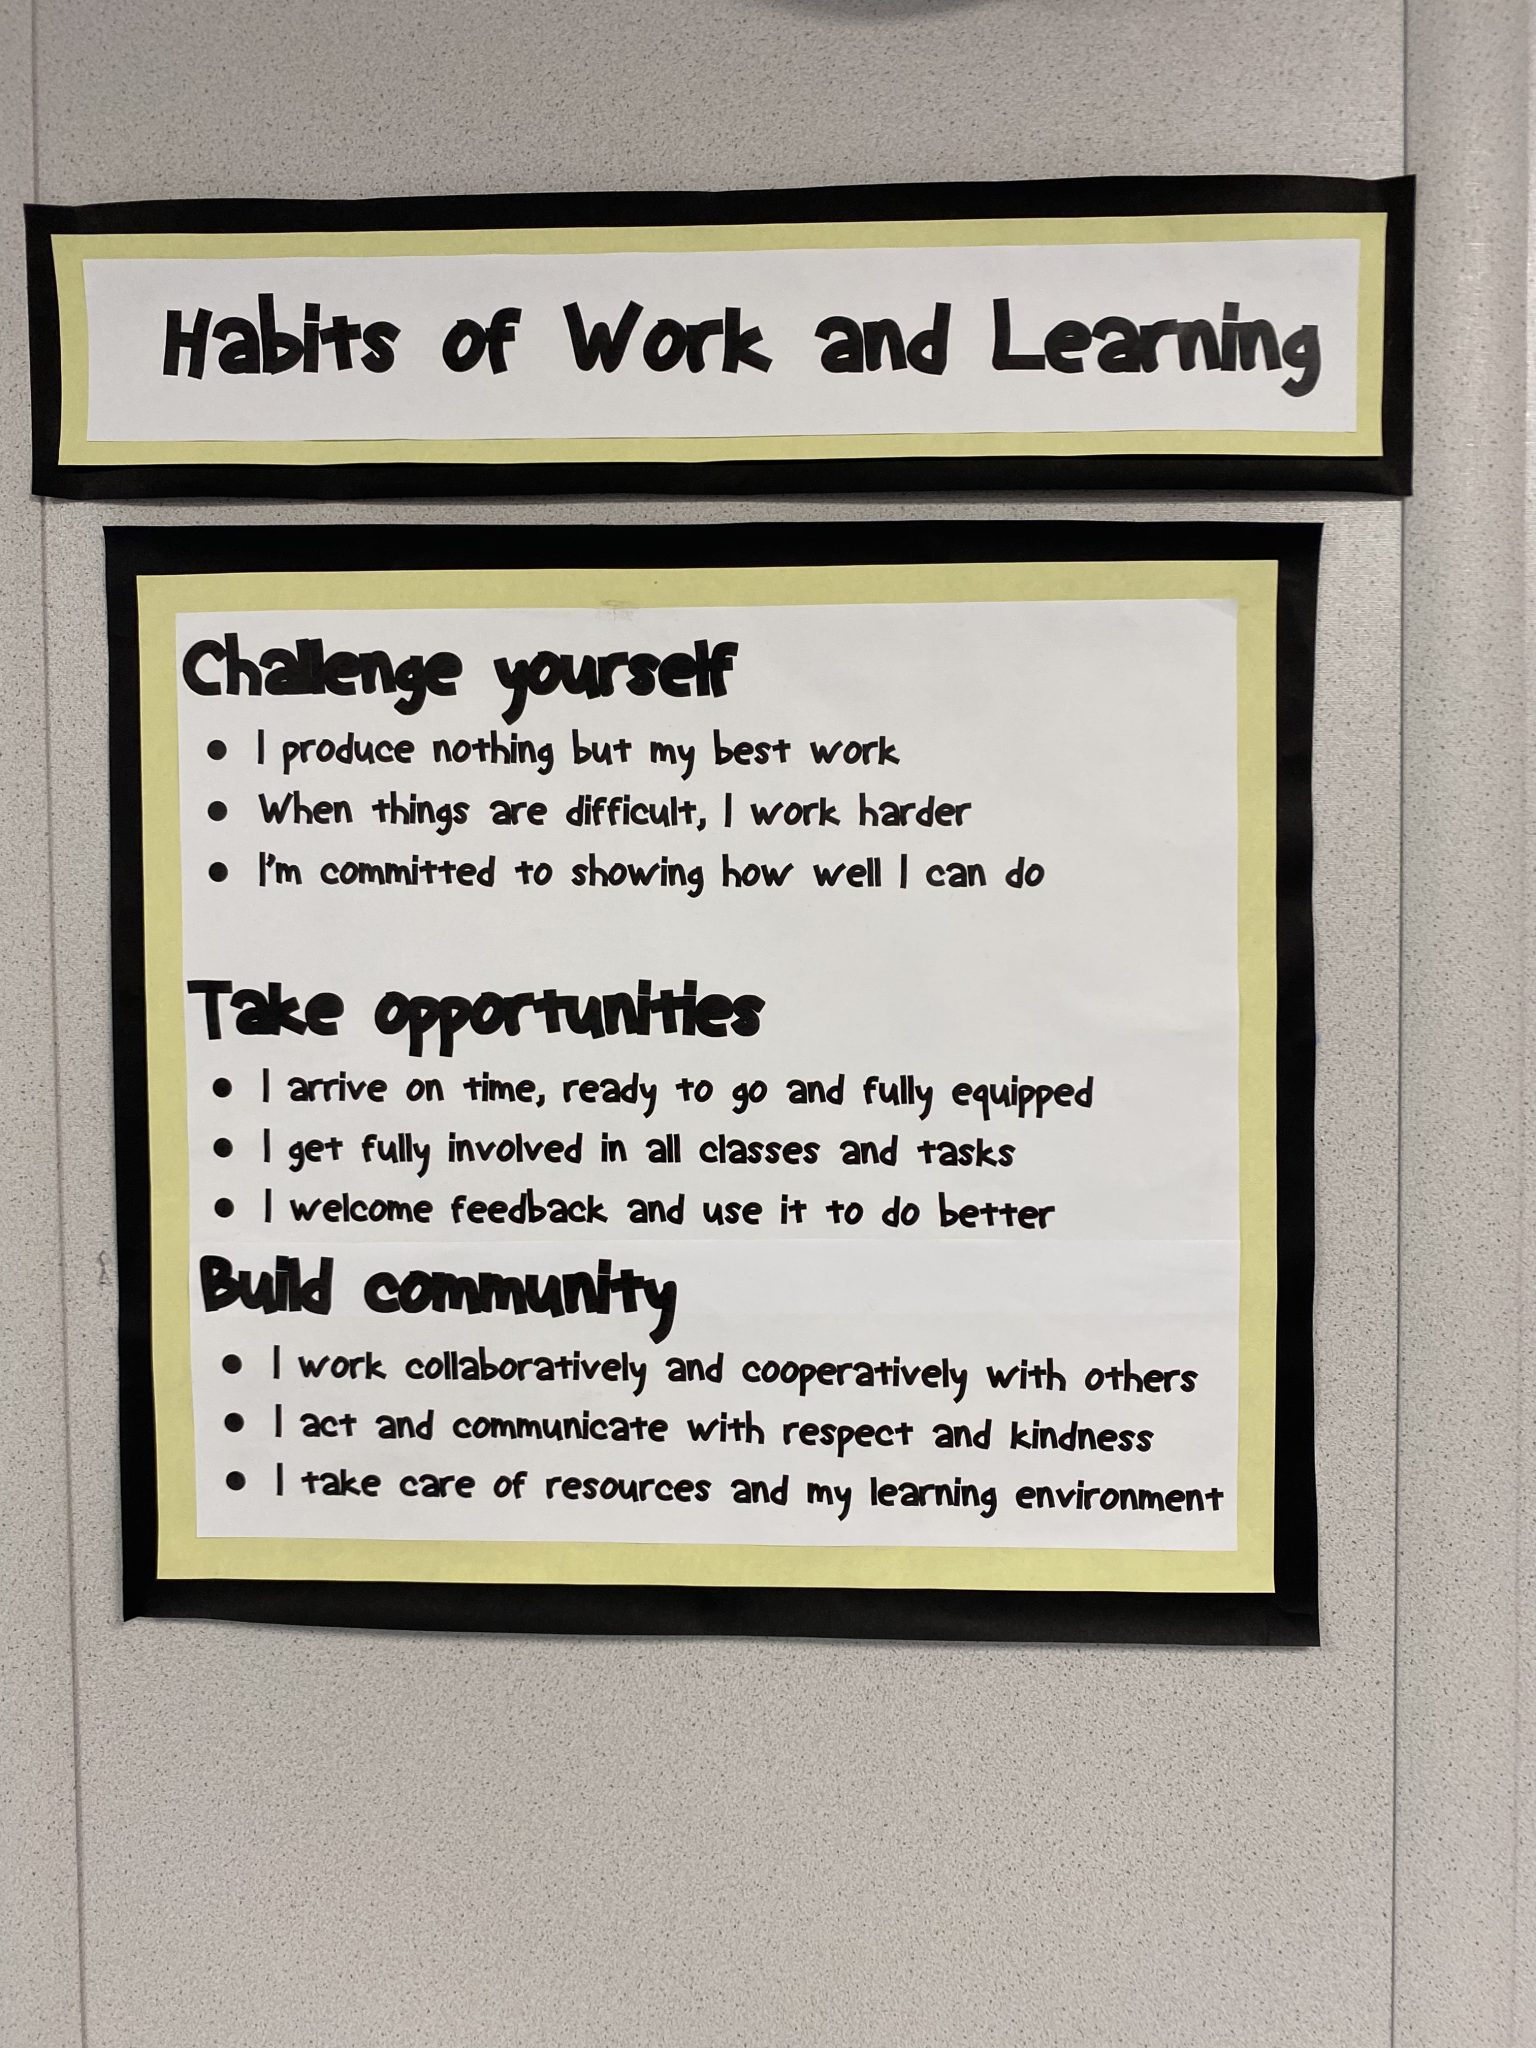 Habits of Work and Learning
Challenge yourself
● I produce nothing but my best work
● When things are difficult, I work harder
● I'm committed to showing how well I can do
Take opportunities
● I arrive on time, ready to go and fully equipped
● I get fully involved in all classes and tasks
● I welcome feedback and use it to do better
Build community
● I work collaboratively and cooperatively with others
● I act and communicate with respect and kindness
● I take care of resources and my learning environment